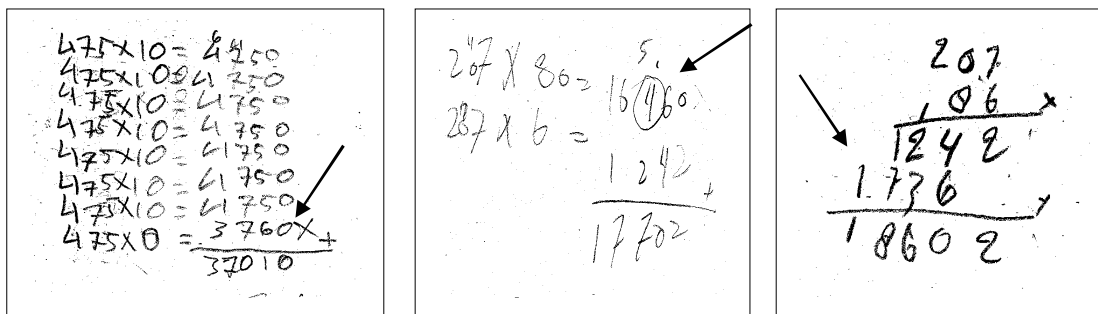 475×10= 4750
475×10=4750
475×10=4750
475×10=4750
475×10=4750
475×10=4750
475×10=4750
475×8 = 3760× +
37010
5
207 × 80= 16460
207 × 6 =
1242 +
17702
207
86 ×
1242
1736 +
18602